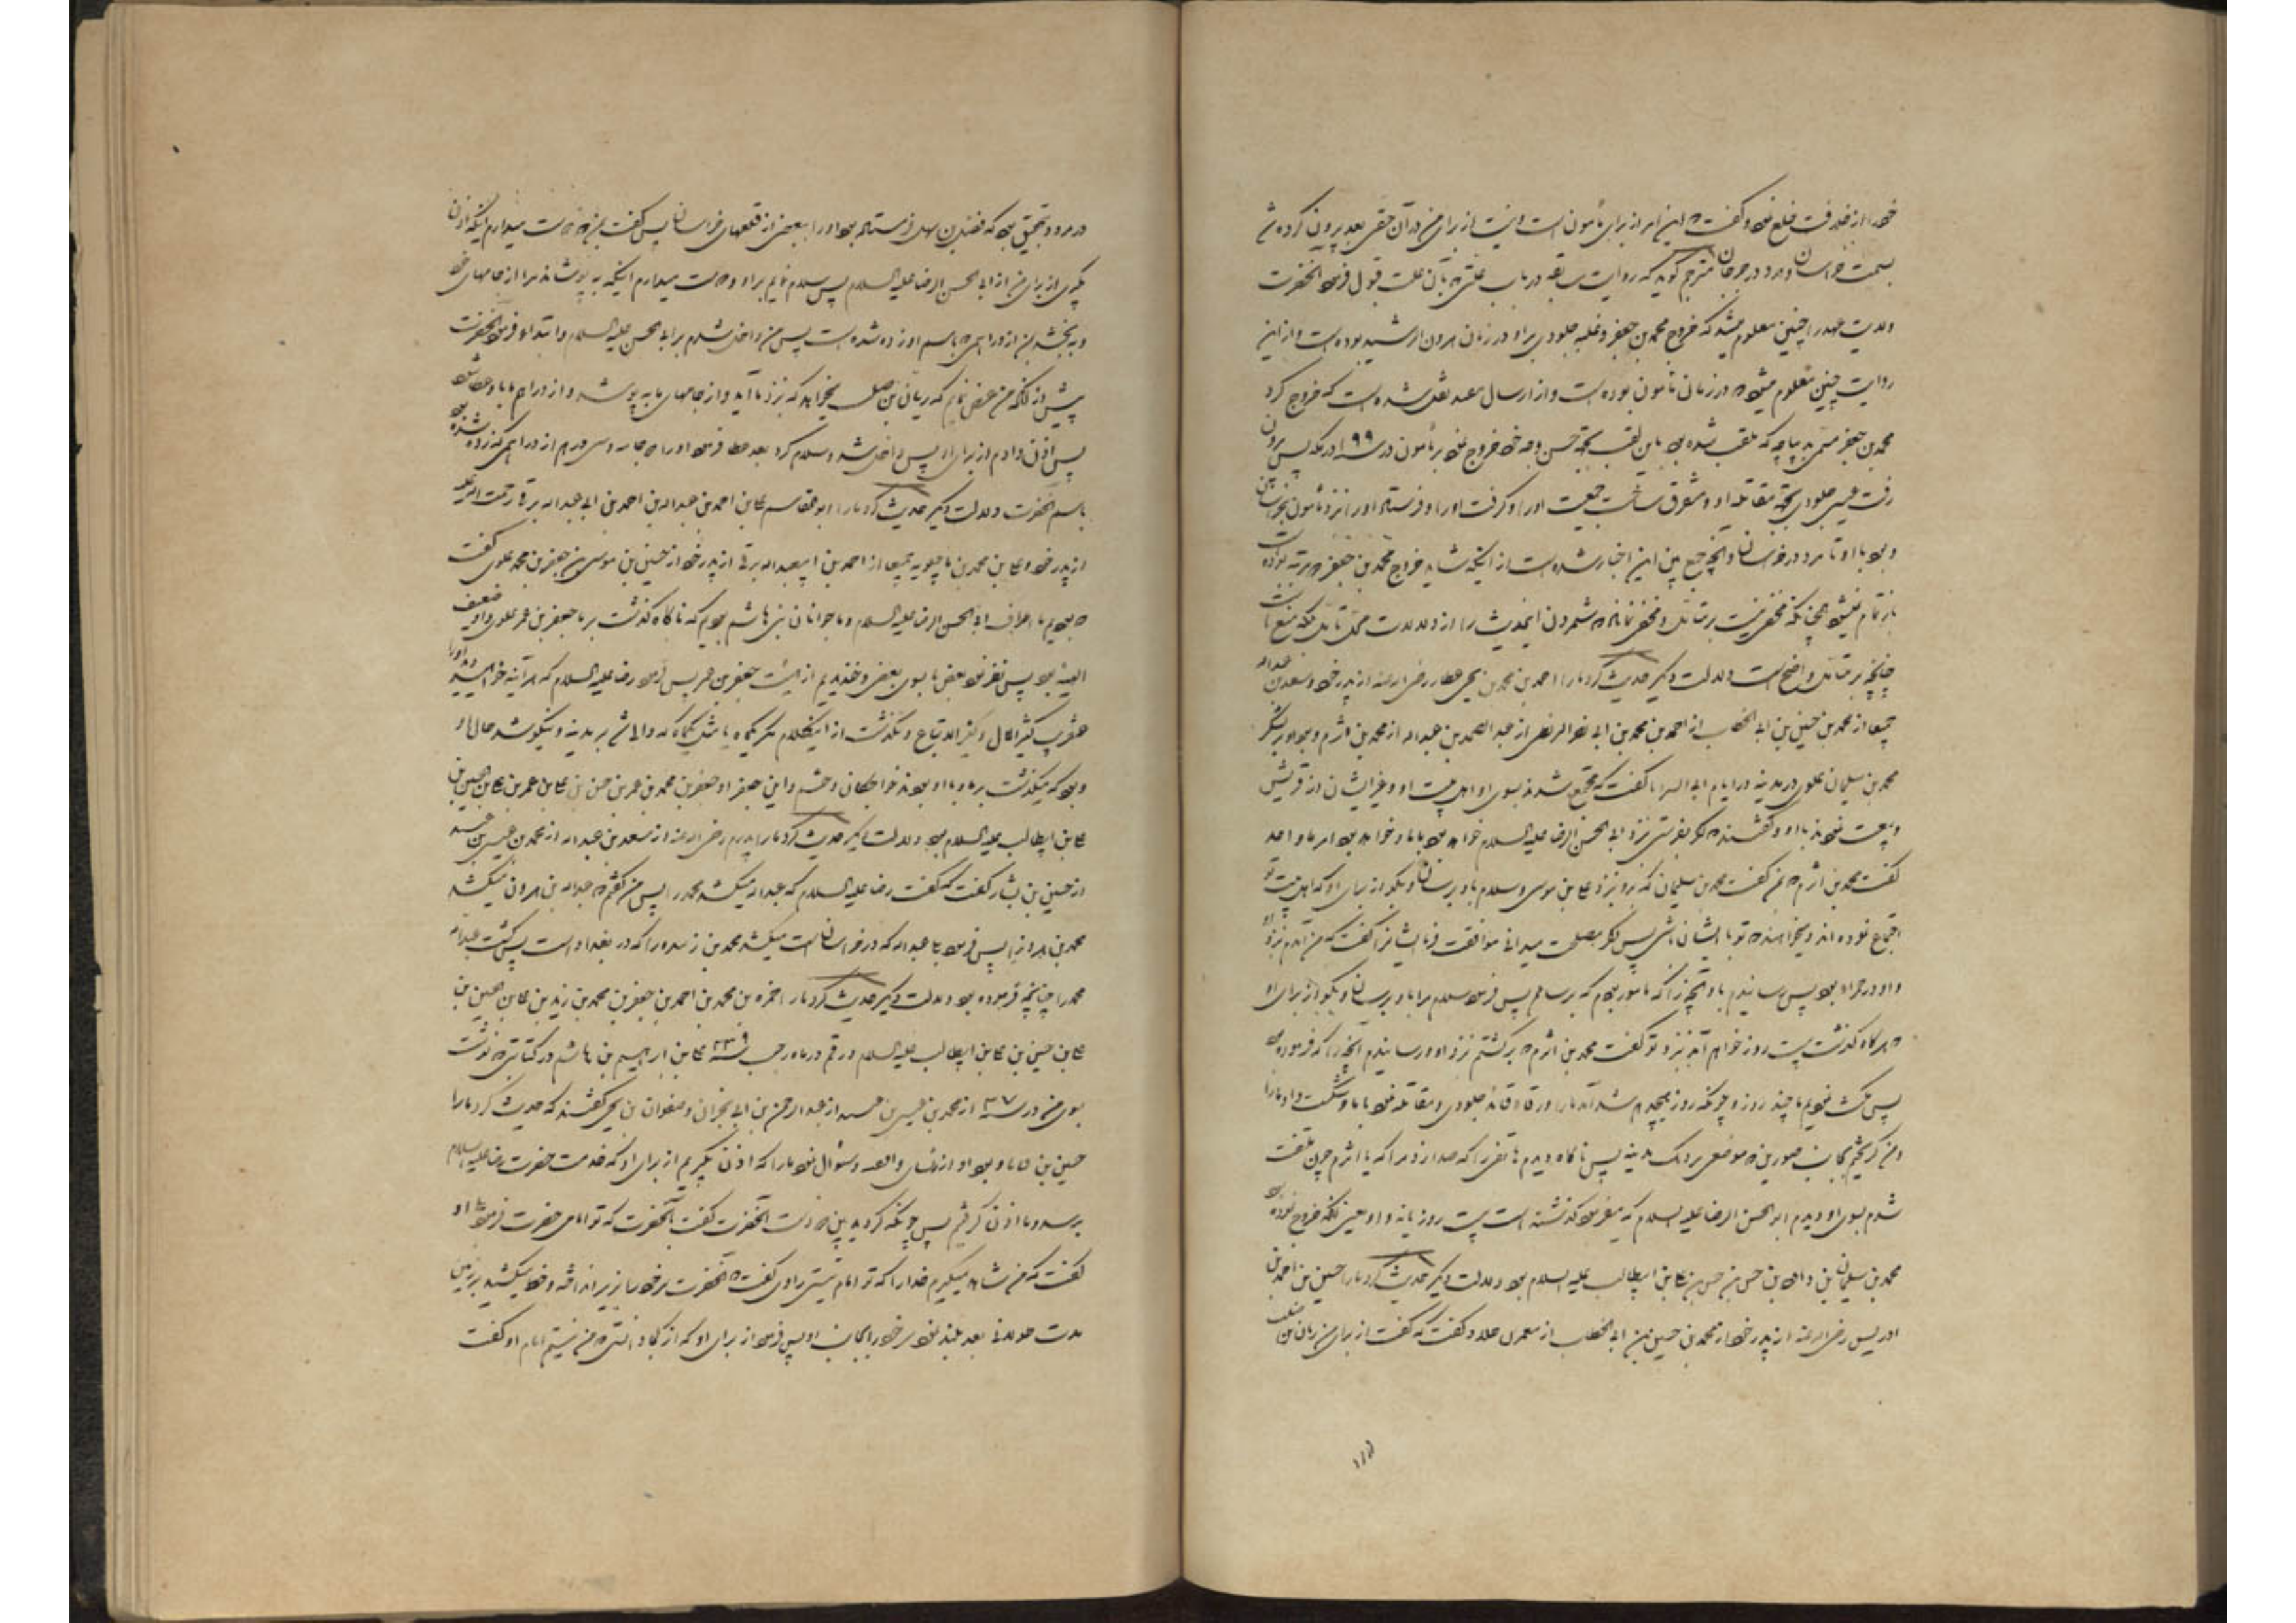 خود را از خلافت خلع نمود و گفت که این امر از برای مأمون است و نیست از برای من در آن حقی بعد بیرون کرده شد
بسمت خراسان و مرد در جرجان مترجم گوید که روایت سابقه در باب علتی که بآن علت قبول فرمود آنحضرت
ولایت عهد را چنین معلوم میشد که خروج محمد بن جعفر و غلبه جلودی بر او در زمان هرون الرشید بوده است و از این
روایت چنین معلوم میشود که در زمان مأمون بوده است و از ارسال نقل شده است که خروج کرد
محمد بن جعفر مسمی بدیباجه که ملقب شده بود باین لقب بجهة حسن وجه خود خروج نمود بر مأمون در سنه ۱۹۹ در مکه پس بیرون
رفت عیسی جلودی بجهة مقاتله او و متفرق ساخت جمعیت او را و گرفت او را و فرستاد او را نزد مأمون بخراسان
و بود با او تا مرد در خراسان و آنچه جمع بین این اخبار شده است از اینکه شاید خروج محمد بن جعفر دو مرتبه بوده است
باز تمام نمیشود چنانکه مخفی نیست بر متأمل و مخفی نماند که شمردن اینحدیث را از دلالات محل تأمل بلکه منع است
چنانچه بر متأمل واضح است دلالت دیگر حدیث کرد ما را احمد بن محمد بن یحیی عطار رضی الله عنه از پدر خود و سعد بن عبدالله
جمیعا از محمد بن حسین بن ابی الخطاب از احمد بن محمد بن ابی نصر البزنطی از عبد الصمد بن عبدالله از محمد بن اثرم و بود او بر لشکر
محمد بن سلیمان علوی در مدینه در ایام ابی السرایا گفت که مجتمع شدند بسوی او اهل بیت او و غیر ایشان از قریش
و بیعت نمودند با او و گفتند که اگر بفرستی نزد ابی الحسن الرضا علیه السلام خواهد بود با ما و خواهد بود امر ما واحد
گفت محمد بن اثرم که بمن گفت محمد بن سلیمان که برو نزد علی بن موسی و سلام باو برسان و بگو از برای او که اهل بیت تو
اجتماع نموده اند و میخواهند که تو با ایشان باشی پس اگر مصلحت میدانی موافقت فرما ایشانرا گفت که من آمدم نزد او
و او در حمراء بود پس رسانیدم باو آنچه را که مامور بودم که برسانم پس فرمود سلام مرا باو برسان و بگو از برای او
که هرگاه گذشت بیست روز خواهم آمد نزد تو گفت محمد بن اثرم که برگشتم نزد او و رسانیدم آنچه را که فرموده بود
پس مکث نمودیم ما چند روز و چونکه روز هیجدهم شد آمد ما را ورقاء قائد جلودی و مقاتله نمود با ما و شکست داد ما را
و من گریختم بجانب صورین که موضعی نزدیک مدینه پس ناگاه دیدم هاتفی را که صدا زد مرا که یا اثرم چون ملتفت
شدم بسوی او دیدم ابو الحسن الرضا علیه السلام که میفرمود گذشته است بیست روز یا نه و او یعنی آنکه خروج نموده بود
محمد بن سلیمان بن داود بن حسن بن حسن بن علی بن ابیطالب علیه السلام بود دلالت دیگر حدیث کرد ما را حسین بن احمد بن
ادریس رضی الله عنه از پدر خود از محمد بن حسین بن ابی الخطاب از معمر بن خلاد و گفت که گفت از برای من ریان بن صلت
در مرو و بتحقیق بود که فضل بن سهل فرستاده بود او را ببعضی از قلعهای خراسان پس گفت بمن که دوست میدارم اینکه اذن
بگیری از برای من از ابی الحسن الرضا علیه السلام پس سلام نمایم بر او و دوست میدارم اینکه بپوشاند مرا از جامهای خود
و ببخشد بمن از دراهمی که باسم او زده شده است پس من داخل شدم بر ابی الحسن علیه السلام و ابتداء فرمود آنحضرت
پیش از آنکه من عرض نمایم که ریان بن صلت میخواهد که نزد ما آید و از جامهای ما بپوشد و از دراهم ما باو عطا شود
پس اذن دادم از برای او پس داخل شد و سلام کرد بعد عطا فرمود او را دو جامه و سی درهم از دراهمی که زده شده بود
باسم آنحضرت دلالت دیگر حدیث کرد ما را ابو القاسم علی بن احمد بن عبدالله بن احمد بن ابی عبدالله برقی رحمت الله علیه
از پدر خود و علی بن محمد بن ماجیلویه جمیعا از احمد بن ابیعبدالله برقی از پدر خود از حسین بن موسی بن جعفر بن محمد علوی گفت
که بودیم ما اطراف ابی الحسن الرضا علیه السلام و ما جوانان بنی هاشم بودیم که ناگاه گذشت بر ما جعفر بن عمر علوی و او ضعیف
البینه بود پس نظر نمود بعض ما بسوی بعضی و خندیدیم از هیئت جعفر بن عمر پس فرمود رضا علیه السلام که هر آینه خواهید دید او را
عنقریب کثیر المال و کثیر الاتباع و نگذشت از اینکلام مگر یکماه یا مثل یکماه که والی شد بر مدینه و نیکو شد حال او
و بود که میگذشت بر ما و با او بودند خواجگان و حشم و این جعفر او جعفر بن محمد بن عمر بن حسن بن علی بن عمر بن علی بن الحسین بن
علی بن ابیطالب علیه السلام بود دلالت دیگر حدیث کرد ما را پدرم رضی الله عنه از سعد بن عبدالله از محمد بن عیسی بن عبید
از حسین بن بشار گفت که گفت رضا علیه السلام که عبدالله میکشد محمد را پس من گفتم که عبدالله بن هرون میکشد
محمد بن هرون را پس فرمود بلی عبدالله که در خراسان است میکشد محمد بن زبیده را که در بغداد است پس کشت عبدالله
محمد را چنانچه فرموده بود دلالت دیگر حدیث کرد ما را حمزه بن محمد بن احمد بن جعفر بن محمد بن زید بن علی بن الحسین بن
علی بن حسین بن علی بن ابیطالب علیه السلام در قم در ماه رجب سنه ۳۳۹ علی بن ابراهیم بن هاشم در کتابتی که نوشت
بسوی من در سنه ۳۰۷ از محمد بن عیسی بن عبید از عبد الرحمن بن ابی نجران و صفوان بن یحیی گفتند که حدیث کرد ما را
حسین بن قیاما و بود او از رؤسای واقفه و سؤال نمود ما را که اذن بگیریم از برای او که خدمت حضرت رضا علیه السلام
برسد و ما اذن گرفتیم پس چونکه گردید بین دو دست آنحضرت گفت بآنحضرت که تو امامی حضرت فرمود بلی او
گفت که من شاهد میگیرم خدا را که تو امام نیستی راوی گفت که آنحضرت سر خود را بزیر انداخته و خط میکشید بر زمین
مدت طولانی بعد بلند نمود سر خود را بجانب او پس فرمود از برای او که از کجا دانستی که من نیستم امام او گفت